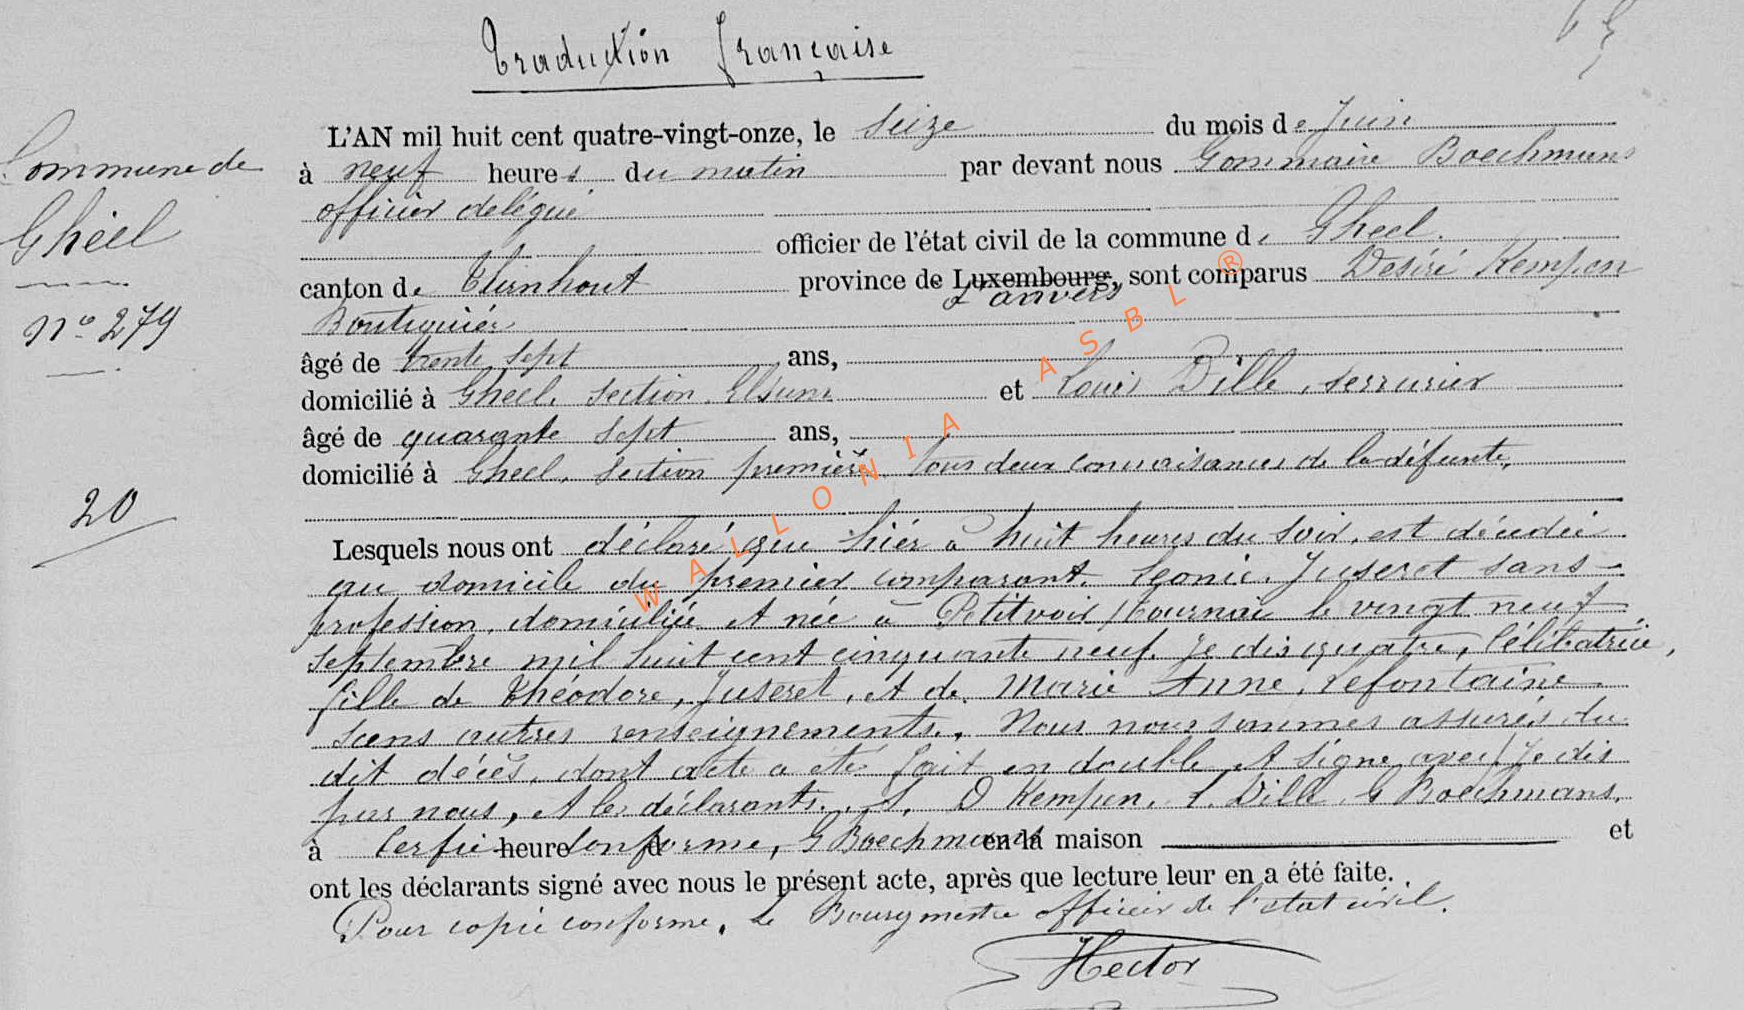 Traduction française
L'AN mil huit cent quatre-vingt-onze, le seize du mois de Juin
Commune de
à neuf heures du matin par devant nous Gommaire Boeckmans
officier délégué
Ghéel
officier de l'état civil de la commune de Gheel.
canton de Thurnhout province de Luxembourg, sont comparus Desiré Kempen
d'anvers
Boutiquiér
N° 279
âgé de trente sept ans,
domicilié à Gheel, section Elsum et Louis Dille, serrurier
âgé de quarante sept ans,
domicilié à Gheel, section première. Tous deux connaisances de la défunte,
20
Lesquels nous ont déclaré que hiér à huit heures du soir, est décedée
au domicile du premier comparant. Leonie. Juseret sans-
profession, domiciliée et née à Petitvoir, tournai le vingt neuf
septembre mil huit cent cinquante neuf. je dis quatre, Célibatrice,
fille de Théodore, Juseret, et de Marie Anne, Lefontaine
sans autres renseignements. Nous nous sommes assurés du
dit décès, dont acte a été fait en double et signe avec, je dis
par nous, et les déclarants. S. D Kempen, L. Dille, G Boeckmans,
à Cerfié heure conforme, G Boeckmans en la maison et
ont les déclarants signé avec nous le présent acte, après que lecture leur en a été faite.
Pour copie conforme, Le Bourgmestre officier de l'état civil.
Hector
WALLONIA ASBL ®